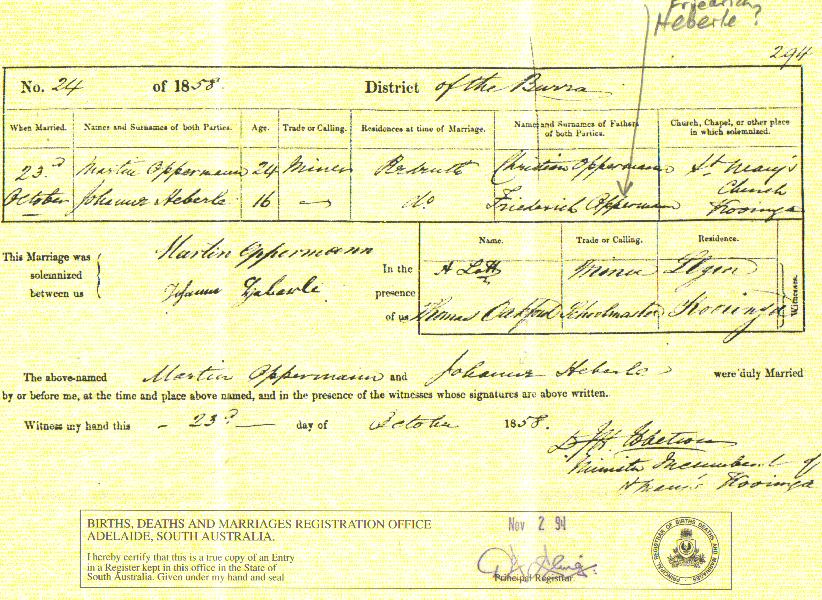 Friedrich
Heberle?
294
No. 24 of 1858. District of the Burra
When Married. Names and Surnames of both Parties. Age. Trade or Calling. Residences at time of Marriage. Names and Surnames of Fathers of both Parties. Church, Chapel, or other place in which solemnized.
23rd Martin Oppermann 24 Miner Redruth Christian Oppermann St Mary's
Church
October Johanne Heberle 16 — do Friederich Opperman Kooringa
This Marriage was
solemnized
between us
Martin Oppermann
Heberle
In the
presence
of us
Name. Trade or Calling. Residence.
A Lott Miner
Thomas Oakford Schoolmaster Kooringa
Witnesses.
The above-named Martin Oppermann and Johanne Heberle were duly Married
by or before me, at the time and place above named, and in the presence of the witnesses whose signatures are above written.
Witness my hand this - 23rd — day of October 1858.
Minister Incumbent of
St Mary's Kooringa
BIRTHS, DEATHS AND MARRIAGES REGISTRATION OFFICE
ADELAIDE, SOUTH AUSTRALIA.
I hereby certify that this is a true copy of an Entry
in a Register kept in this office in the State of
South Australia. Given under my hand and seal
Nov 2 94
Principal Registrar.
PRINCIPAL REGISTRAR OF BIRTHS DEATHS AND MARRIAGES